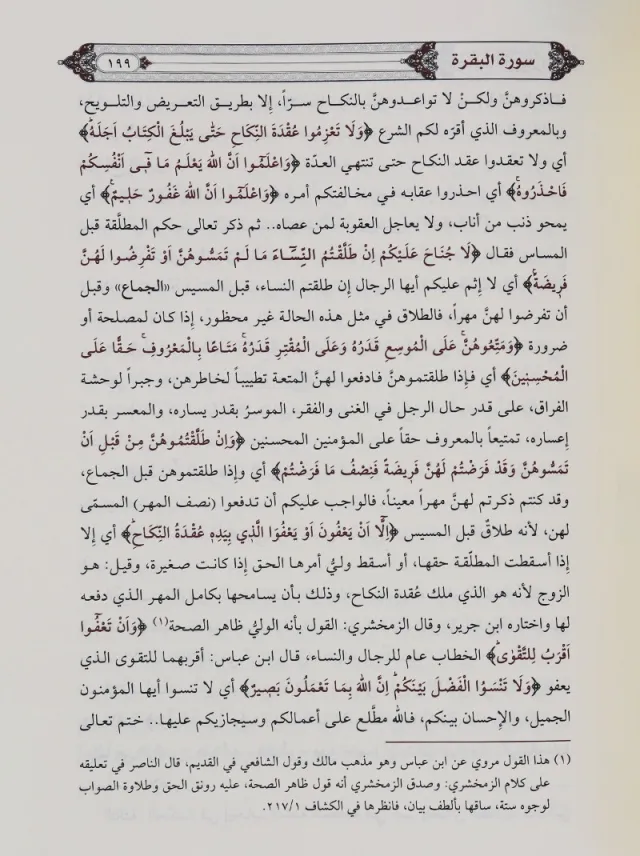 سورة البقرة
١٩٩
فـاذكروهنَّ ولكنْ لا تواعـدوهنَّ بالنكـاح سـرّاً، إلا بطريـق التعـريض والتلويـح،
وبالمعروف الذي أقرّه لكم الشرع ﴿وَلَا تَعْزِمُوا عُقْدَةَ النِّكَاحِ حَتَّى يَبْلُغَ الْكِتَابُ أَجَلَهُ﴾
أي ولا تعقدوا عقد النكاح حتى تنتهي العدّة ﴿وَاعْلَمُوا أَنَّ اللهَ يَعْلَمُ مَا فِي أَنْفُسِكُمْ
فَاحْذَرُوهُ﴾ أي احذروا عقابه في مخالفتكم أمره ﴿وَاعْلَمُوا أَنَّ اللهَ غَفُورٌ حَلِيمٌ﴾ أي
يمحو ذنب من أناب، ولا يعاجل العقوبة لمن عصاه.. ثم ذكر تعالى حكم المطلَّقة قبل
المساس فقال ﴿لَا جُنَاحَ عَلَيْكُمْ إِنْ طَلَّقْتُمُ النِّسَاءَ مَا لَمْ تَمَسُّوهُنَّ أَوْ تَفْرِضُوا لَهُنَّ
فَرِيضَةً﴾ أي لا إثم عليكم أيها الرجال إن طلقتم النساء، قبل المسيس «الجماع» وقبل
أن تفرضوا لهنَّ مهراً، فالطلاق في مثل هذه الحالة غير محظور، إذا كان لمصلحة أو
ضرورة ﴿وَمَتِّعُوهُنَّ عَلَى الْمُوسِعِ قَدَرُهُ وَعَلَى الْمُقْتِرِ قَدَرُهُ مَتَاعًا بِالْمَعْرُوفِ حَقًّا عَلَى
الْمُحْسِنِينَ﴾ أي فإذا طلقتموهنَّ فادفعوا لهنَّ المتعة تطييباً لخاطرهن، وجبراً لوحشة
الفراق، على قدر حال الرجل في الغنى والفقر، الموسرُ بقدر يساره، والمعسر بقدر
إعساره، تمتيعاً بالمعروف حقاً على المؤمنين المحسنين ﴿وَإِنْ طَلَّقْتُمُوهُنَّ مِنْ قَبْلِ أَنْ
تَمَسُّوهُنَّ وَقَدْ فَرَضْتُمْ لَهُنَّ فَرِيضَةً فَنِصْفُ مَا فَرَضْتُمْ﴾ أي وإذا طلقتموهن قبل الجماع،
وقد كنتم ذكرتم لهنَّ مهراً معيناً، فالواجب عليكم أن تدفعوا (نصف المهر) المسمّى
لهن، لأنه طلاقٌ قبل المسيس ﴿إِلَّا أَنْ يَعْفُونَ أَوْ يَعْفُوَا الَّذِي بِيَدِهِ عُقْدَةُ النِّكَاحِ﴾ أي إلا
إذا أسقطت المطلّقة حقها، أو أسقط وليُّ أمرها الحق إذا كانت صغيرة، وقيل: هـو
الزوج لأنه هو الذي ملك عُقدة النكاح، وذلك بـأن يسامحها بكامل المهر الـذي دفعه
لها واختاره ابن جرير، وقال الزمخشري: القول بأنه الوليُّ ظاهر الصحة(١) ﴿وَأَنْ تَعْفُوا
أَقْرَبُ لِلتَّقْوَى﴾ الخطاب عام للرجال والنساء، قال ابن عباس: أقربهما للتقوى الذي
يعفو ﴿وَلَا تَنْسَوُا الْفَضْلَ بَيْنَكُمْ إِنَّ اللهَ بِمَا تَعْمَلُونَ بَصِيرٌ﴾ أي لا تنسوا أيها المؤمنون
الجميل، والإحسان بينكم، فالله مطَّلع على أعمالكم وسيجازيكم عليها.. ختم تعالى
(١) هذا القول مروي عن ابن عباس وهو مذهب مالك وقول الشافعي في القديم، قال الناصر في تعليقه
على كلام الزمخشري: وصدق الزمخشري أنه قول ظاهر الصحة، عليه رونق الحق وطلاوة الصواب
لوجوه ستة، ساقها بألطف بيان، فانظرها في الكشاف ٢١٧/١.